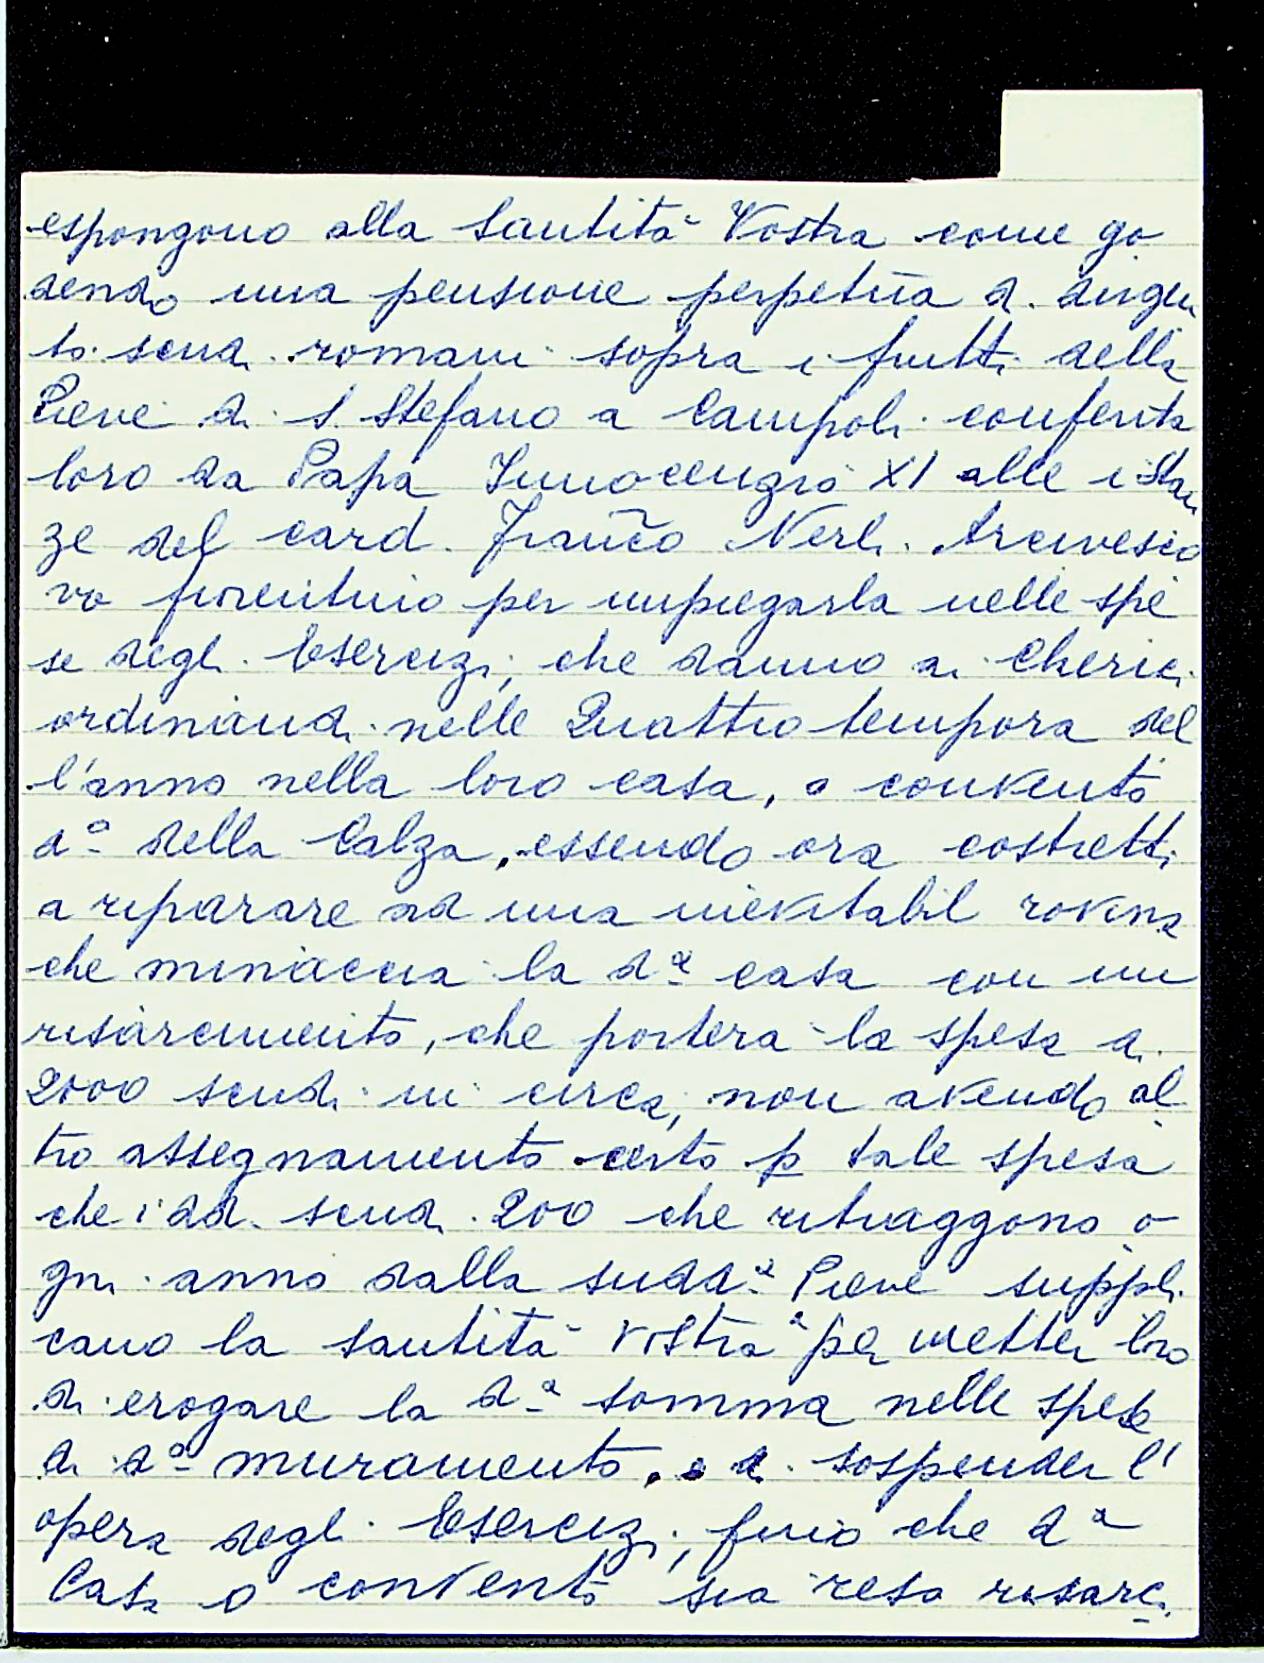 espongono alla Santità Vostra come go
dendo una pensione perpetua di dugen
to scudi romani sopra i frutti della
Pieve di S. Stefano a Campoli conferita
loro da Papa Innocenzio XI alle istan
ze del card. Franco Nerli Arcivesco
vo fiorentino per impiegarla nelle spe
se degli Esercizi, che danno ai Cherici
ordinandi nelle Quattro tempora del
l'anno nella loro casa, o convento
do della Calza, essendo ora costretti
a riparare ad una inevitabil rovina
che minaccia la da casa con un
risarcimento, che porterà la spesa di
2000 scudi in circa, non avendo al
tro assegnamento certo p tale spesa
che i dd. scudi 200 che ritraggono o
gni anno dalla sudda Pieve suppli
cano la santità vostra permetter loro
di erogare la da somma nelle spese
di do muramento, e di sospender l'
opera degli Esercizi, fino che da
Casa o convento sia resa risarci